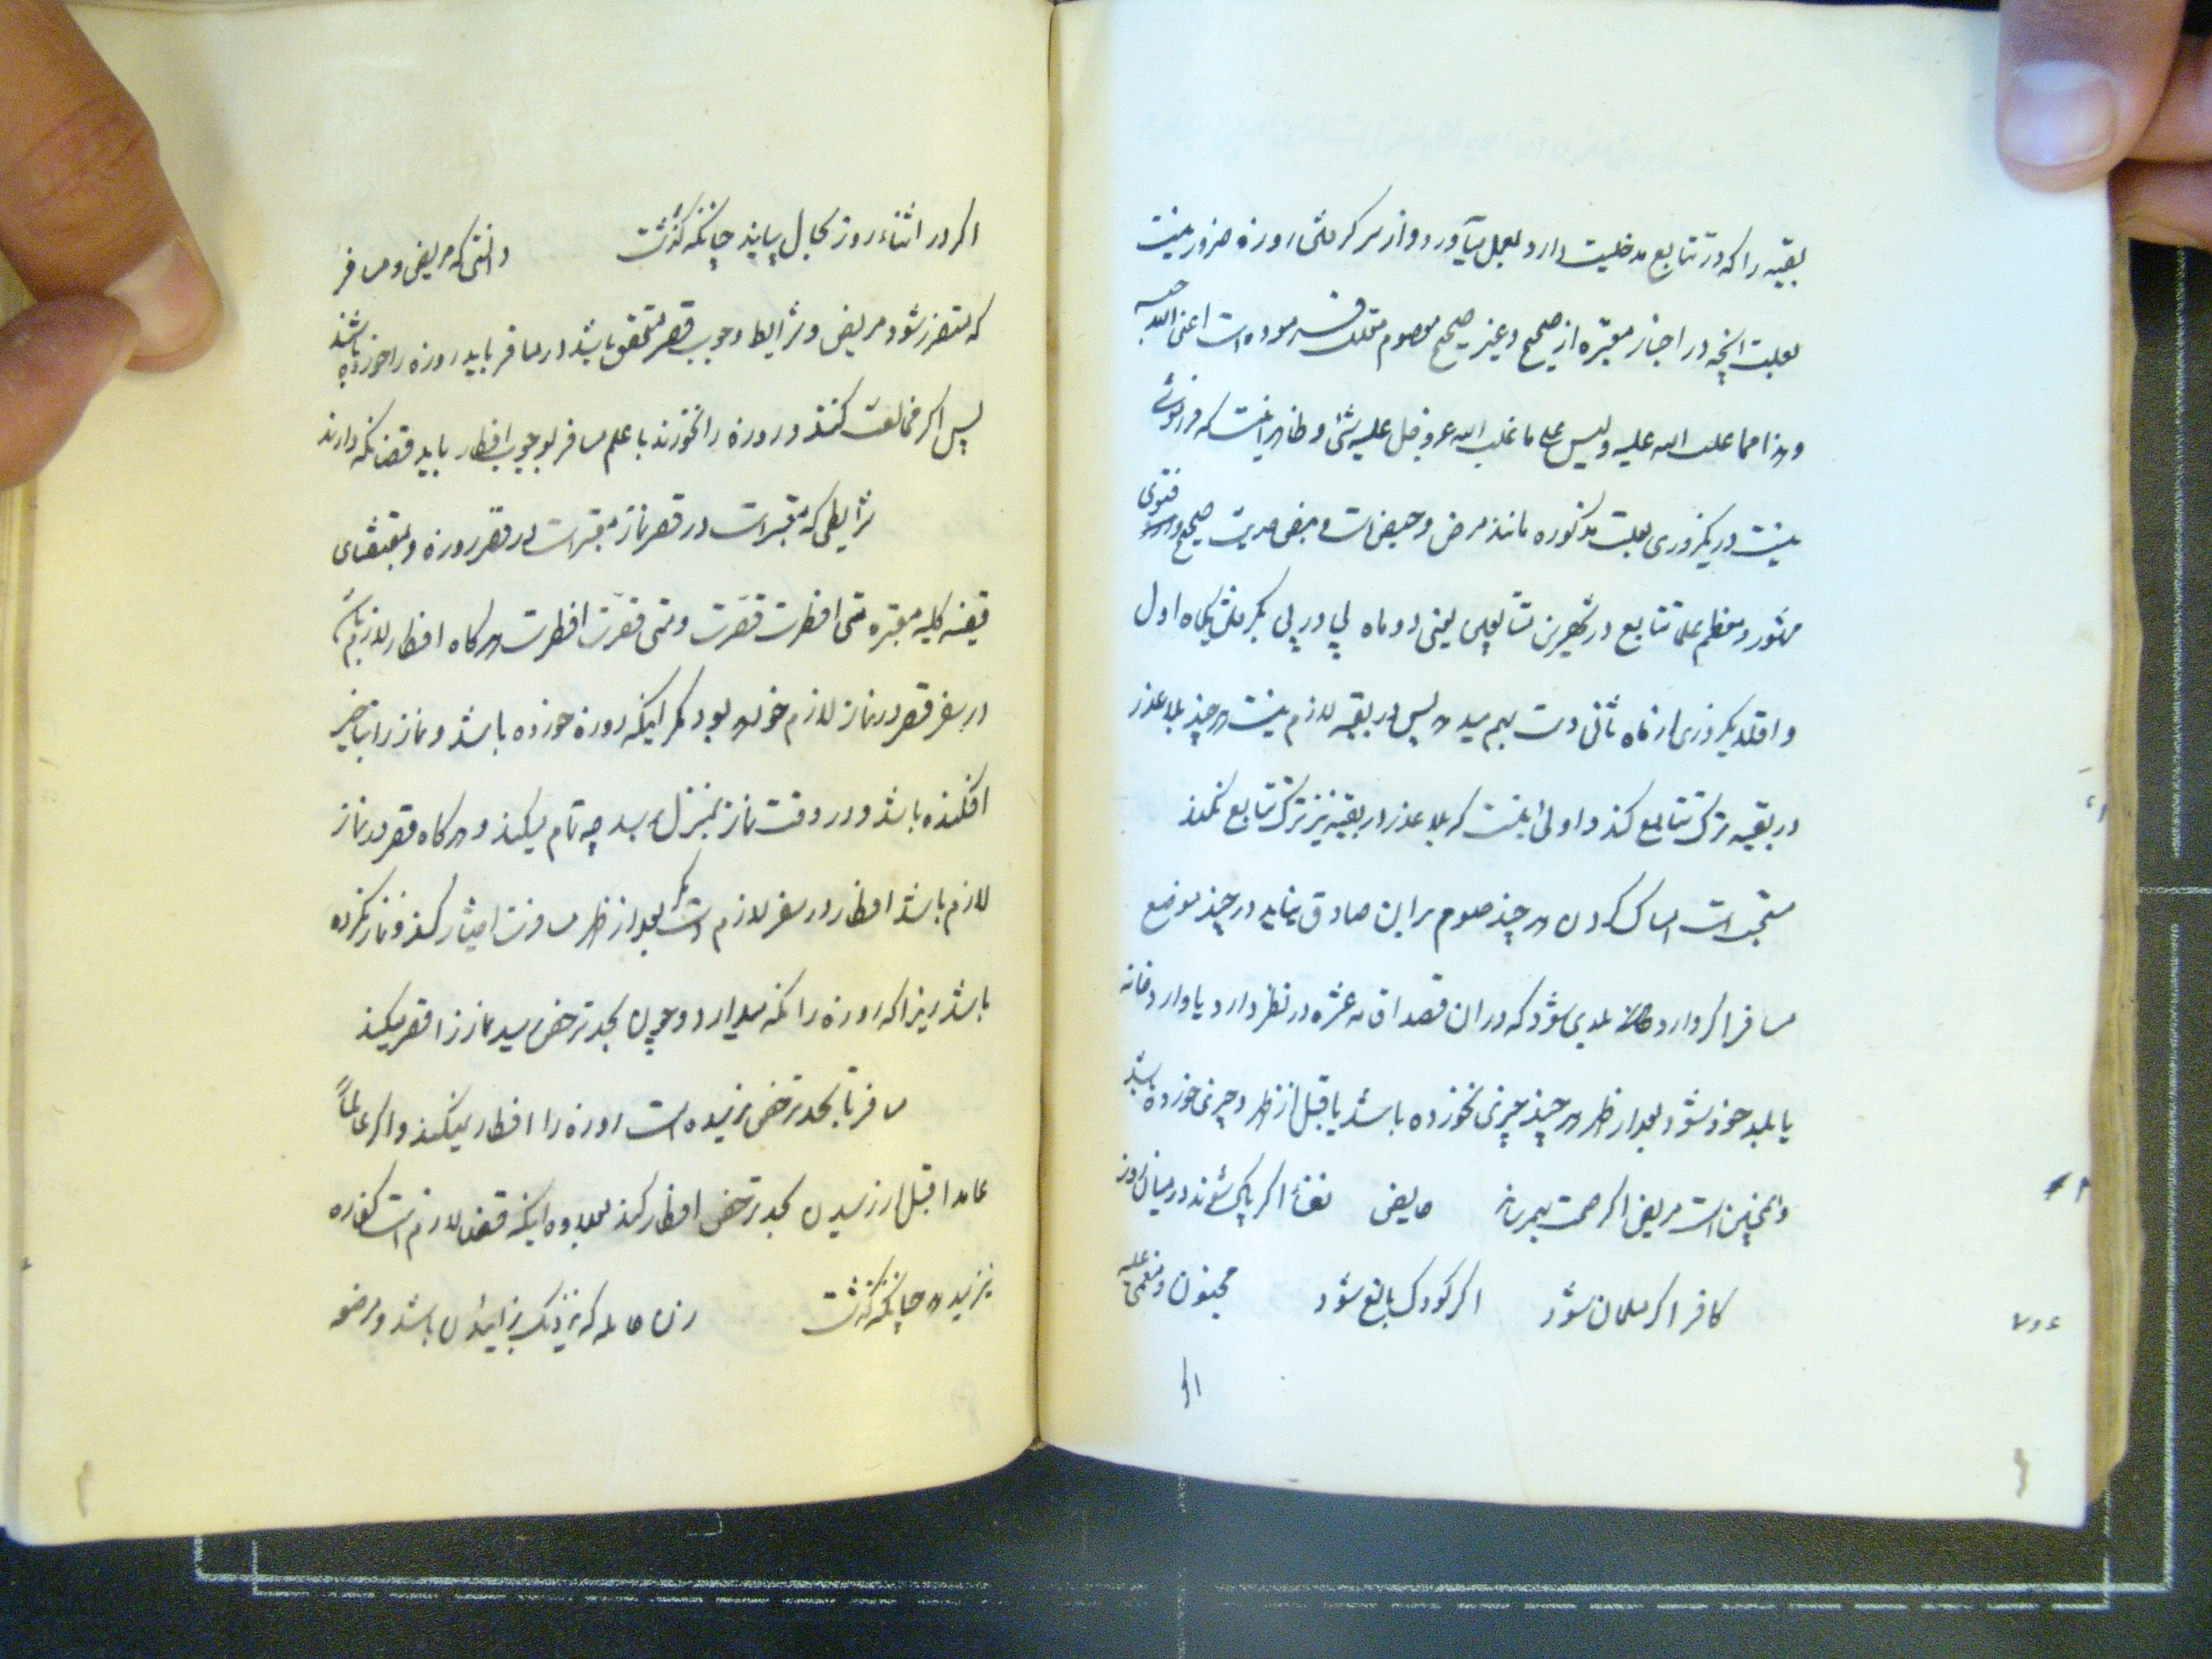 بقیه را که در تتابع مدخلیت دارد بعمل بیآورد و از سر گرفتن روزه ضرور نیست
بعلت آنچه در اخبار معتبره از صحیح و غیر صحیح معصوم فرموده است اعنی الله حبسه
و هذا مما غلب الله علیه و لیس علی ما غلب الله عز و جل علیه شئ و ظاهر اینست که فرقی
نیست در یکروزی بعلت مذکوره مانند مرض و حیض است و بعض حدیث صحیح و فتوی
مشهور و معظم علما تتابع در شهرین متتابعین یعنی دو ماه پی در پی بگرفتن یکماه اول
و اقلا یکروزی از ماه ثانی دست بهم میدهد پس در بقیه لازم نیست هر چند بلا عذر
در بقیه ترک تتابع کند و اولی اینست که بلا عذر در بقیه نیز ترک تتابع نکند
مستحب است امساک کردن هر چند صوم بر این صادق نیاید در چند موضع
مسافر اگر وارد بلدی شود که در آن قصد اقامه عشره در نظر دارد یا وارد خانه
یا بلد خود شود بعد از ظهر هر چند چیزی نخورده باشد یا قبل از ظهر و چیزی خورده باشد
و همچنین است مریض اگر صحت بهم رساند حایض نفسا اگر پاک شوند در میان روز
کافر اگر مسلمان شود اگر کودک بالغ شود مجنون و مغمی علیه
اگر
اگر در اثناء روز بحال بیایند چنانکه گذشت دانستی که مریض و مسافر
که متضرر شود مریض و شرایط وجوب قصر متحقق باشد در مسافر باید روزه را خورده باشند
پس اگر مخالفت کنند و روزه را نخورند با علم مسافر بوجوب افطار باید قضا نگه دارند
شرایطی که معتبر است در قصر نماز معتبر است در قصر روزه و بمقتضای
قضیه کلیه معتبره متی افطرت قصرت و متی قصرت افطرت هر گاه افطار لازم باشد
در سفر قصر در نماز لازم خواهد بود مگر اینکه روزه خورده باشد و نماز را بتاخیر
افکنده باشد و در وقت نماز بمنزل رسد چه تمام میکند و هر گاه قصر در نماز
لازم باشد افطار در سفر لازم است مگر بعد از ظهر مسافرت اختیار کند و نماز نکرده
باشد زیرا که روزه را نگه میدارد و چون بحد ترخص رسید نماز را قصر میکند
مسافر تا بحد ترخص نرسیده است روزه را افطار نمیکند و اگر عالماً
عامدا قبل از رسیدن بحد ترخص افطار کند بعلاوه اینکه قضا لازم است کفاره
نیز بدهد چنانکه گذشت زن حامله که نزدیک بزائیدن باشد و مرضعه